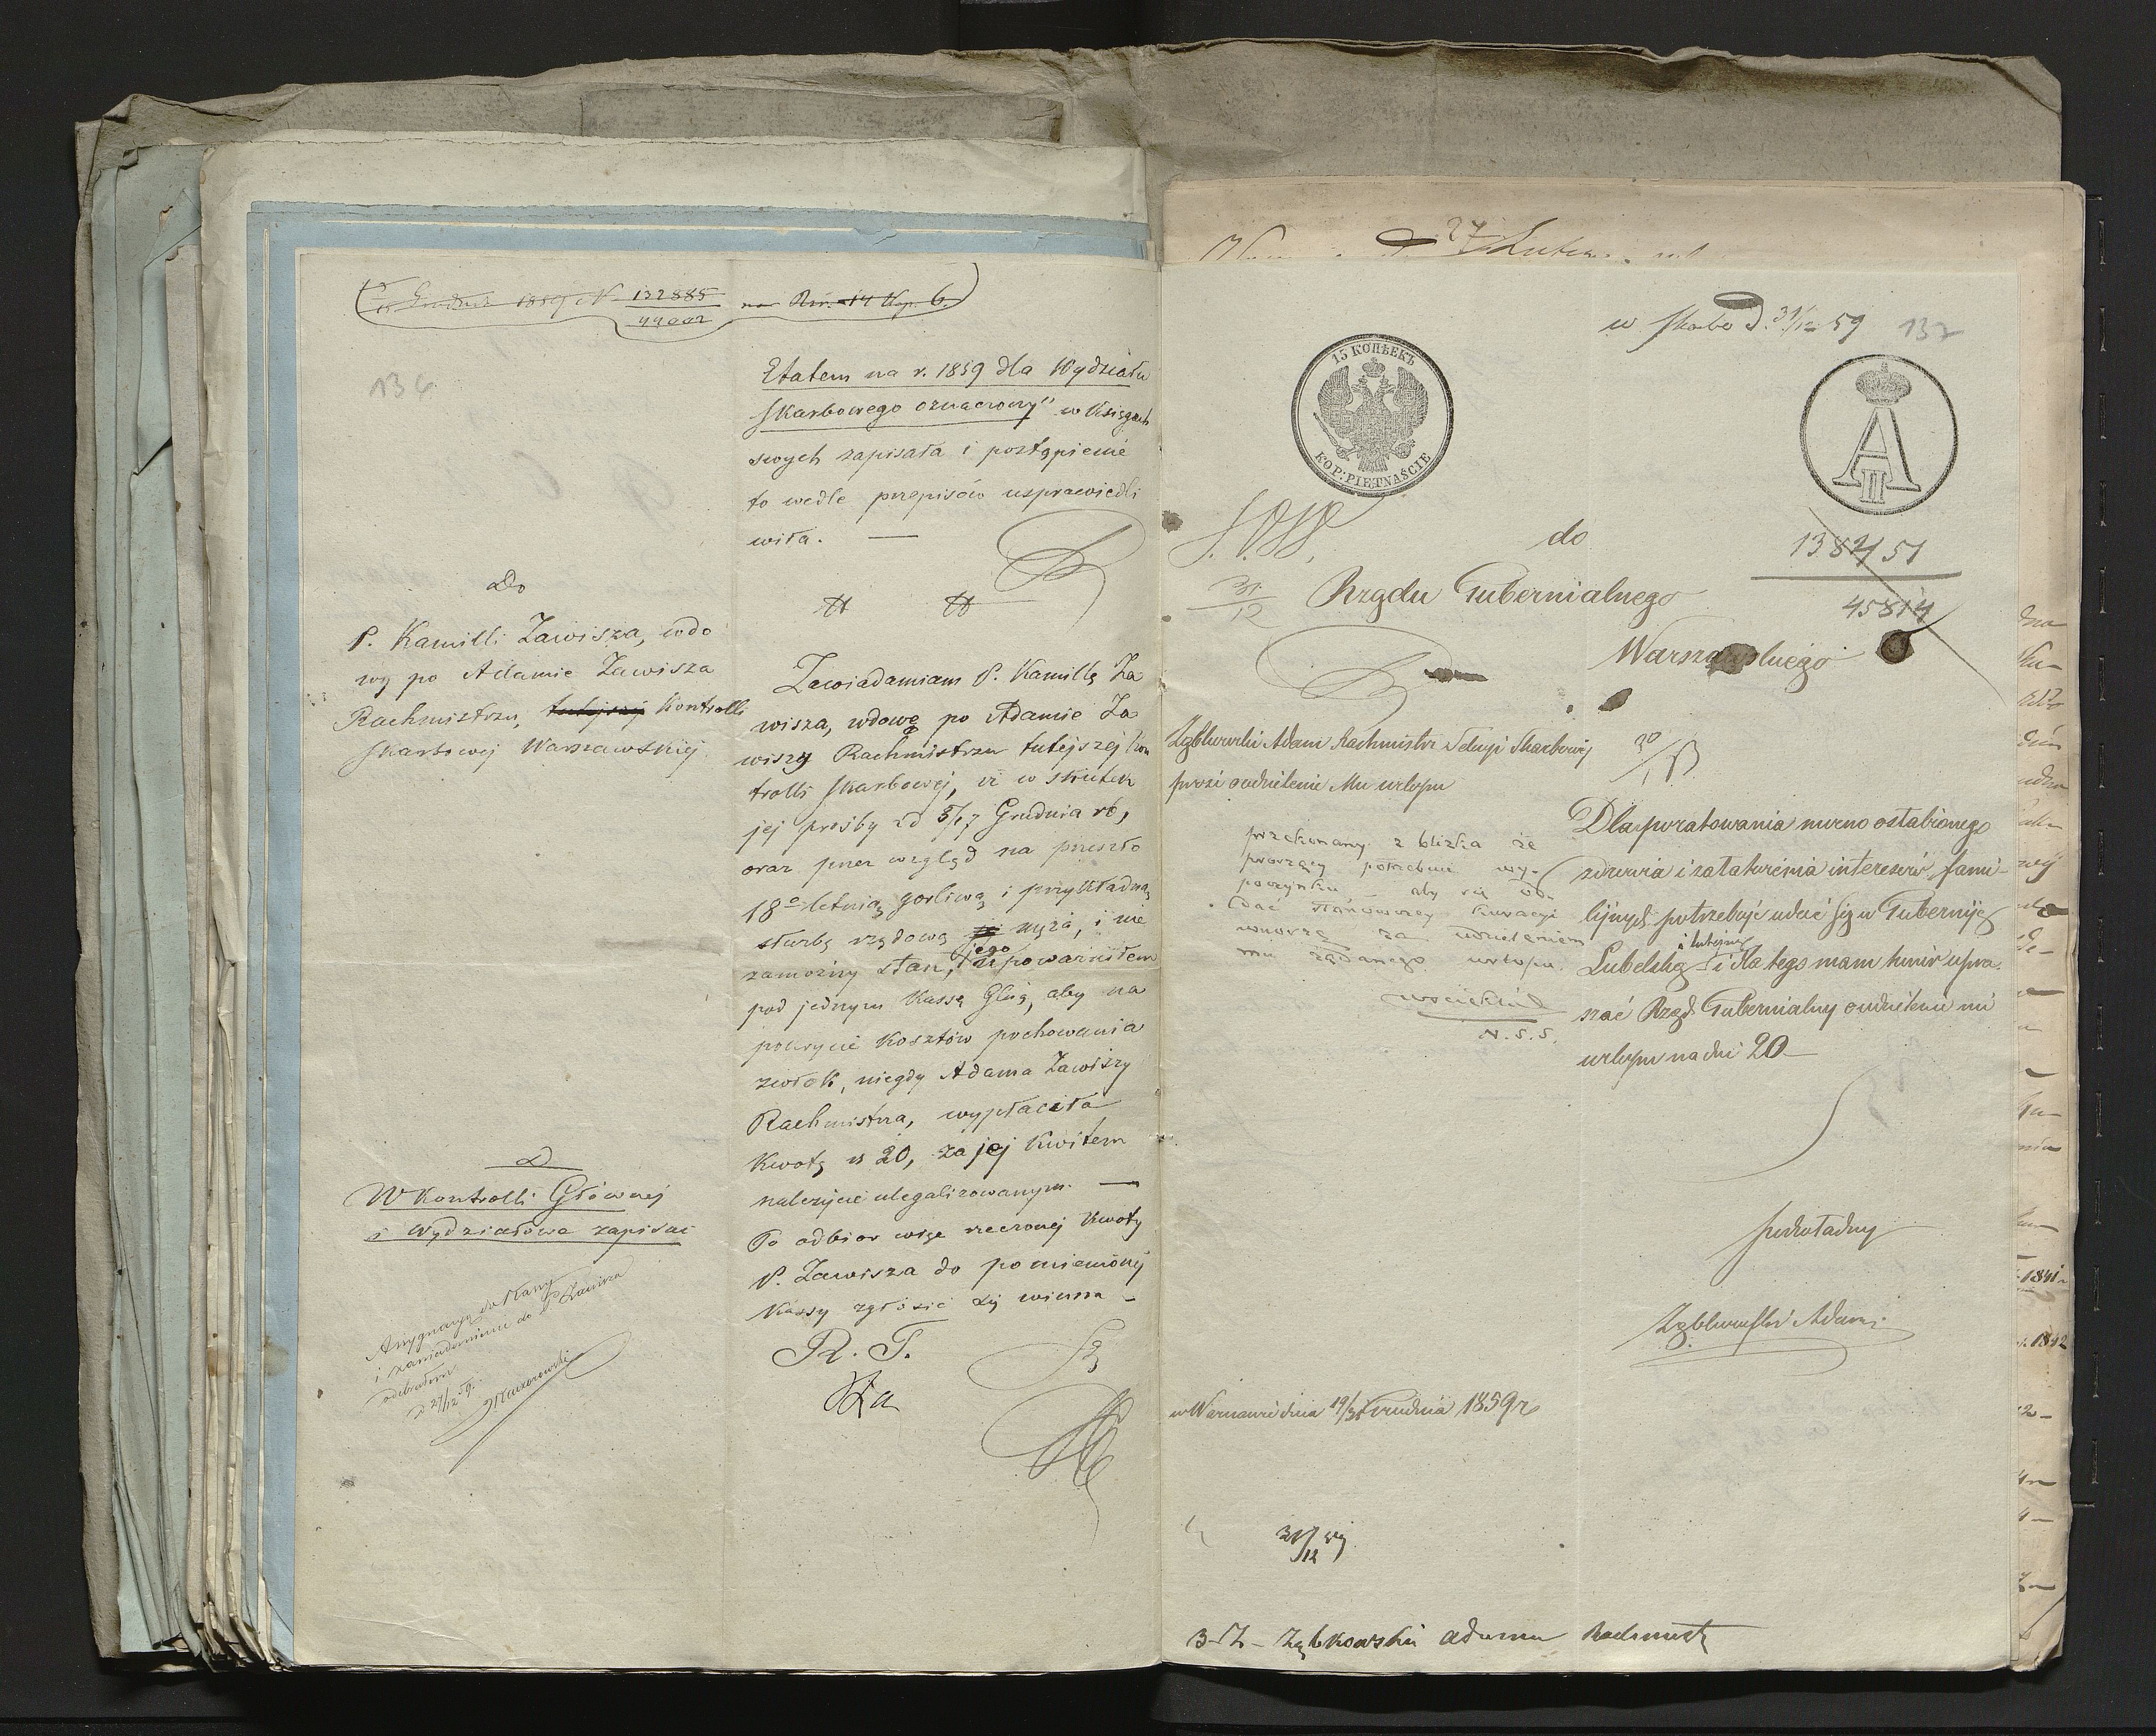 15 Grudnia 1859 N 132885 na Rsr. 14 Kop. 6.
44002
134
Etatem na r. 1859 dla Wydziału
Skarbowego oznaczony" w Księgach
swych zapisała i postąpienie
to wedle przepisów usprawiedli
wiła. —
Do
P. Kamilli Zawisza, wdo
wy po Adamie Zawisza
Rachmistrzu, tutejszej Kontrolli
Skarbowej Warszawskiej
Zawiadamiam P. Kamillę Za
wisza, wdowę po Adamie Za
wiszy Rachmistrzu tutejszej Kon
trolli Skarbowej, iż w skutek
jej prośby z d 5/17 Grudnia rb,
oraz przez wzgląd na przeszło
18º letnią gorliwą i przykładną
służbę rządową jej męża, i nie
zamożny stan, jego upoważniłem
pod jednym Kassę Głną, aby na
pokrycie kosztów pochowania
zwłok, niegdy Adama Zawiszy
Rachmistrza, wypłaciła
Kwotę rs 20, za jej Kwitem
należycie ulegalizowanym. —
Po odbior więc rzeczonej Kwoty
P. Zawisza do pomienionej
Kassy zgłosić się winna —
R. G.
W Kontrolli Głównej
i Wydziałowa zapisać
Assygnacyę do Kassy
i zawiadomienie do P. Zawisza
odebrałem
d 27/12 59.
27 Lutego
w Skarbo d. 31/12 59
137
15 КОПѢЕКЪ
KOP: PIĘTNAŚCIE
A II
138451
45814
31
12
do
Rządu Gubernialnego
Warszawskiego
Ząbkowski Adam Rachmistrz Sekcyi Skarbowej
prosi o udzielenie Mu urlopu
przekonany z blizka że
proszący potrzebuje wy-
poczynku — aby się od-
dać stósownej kuracyi
wnoszę za udzieleniem
mu żądanego urlopu.
N. S. S.
Dla poratowania mocno osłabionego
zdrowia i załatwienia interesów fami-
lijnych potrzebuję udać się w Gubernię
Lubelską i tutejszą i dla tego mam honor upra-
szać Rząd Gubernialny o udzielenie mi
urlopu na dni 20 —
podwładny
Ząbkowski Adam
w Warszawie dnia 19/31 Grudnia 1859 r
31/12 59
Ząbkowski Adam Rachmistrz
1841
1842